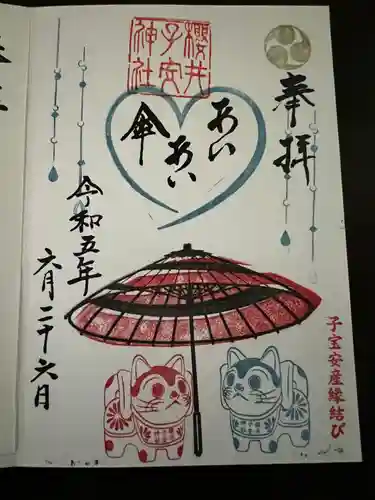 奉拝
櫻井
子安
神社
あい
あい
傘
令和五年
六月二十六日
子宝安産縁結び